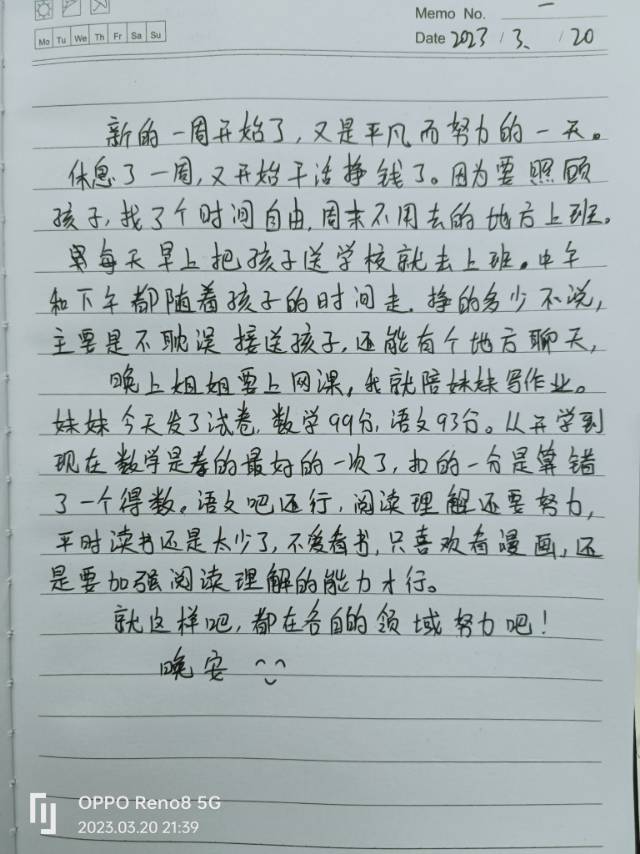 Memo No. 一
Mo Tu We Th Fr Sa Su
Date 2023 / 3. / 20
新的一周开始了，又是平凡而努力的一天。
休息了一周，又开始干活挣钱了。因为要照顾
孩子，找了个时间自由，周末不用去的地方上班。
每天早上把孩子送学校就去上班。中午
和下午都随着孩子的时间走．挣的多少不说，
主要是不耽误接送孩子，还能有个地方聊天，
晚上姐姐要上网课，我就陪妹妹写作业。
妹妹今天发了试卷，数学99分，语文93分。从开学到
现在数学是考的最好的一次了，扣的一分是算错
了一个得数。语文吧还行，阅读理解还要努力，
平时读书还是太少了，不爱看书，只喜欢看漫画，还
是要加强阅读理解的能力才行。
就这样吧，都在各自的领域努力吧！
晚安
OPPO Reno8 5G
2023.03.20 21:39